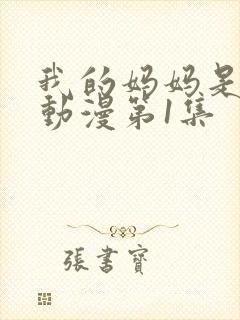 我的妈妈是
動漫第1集
張書寶